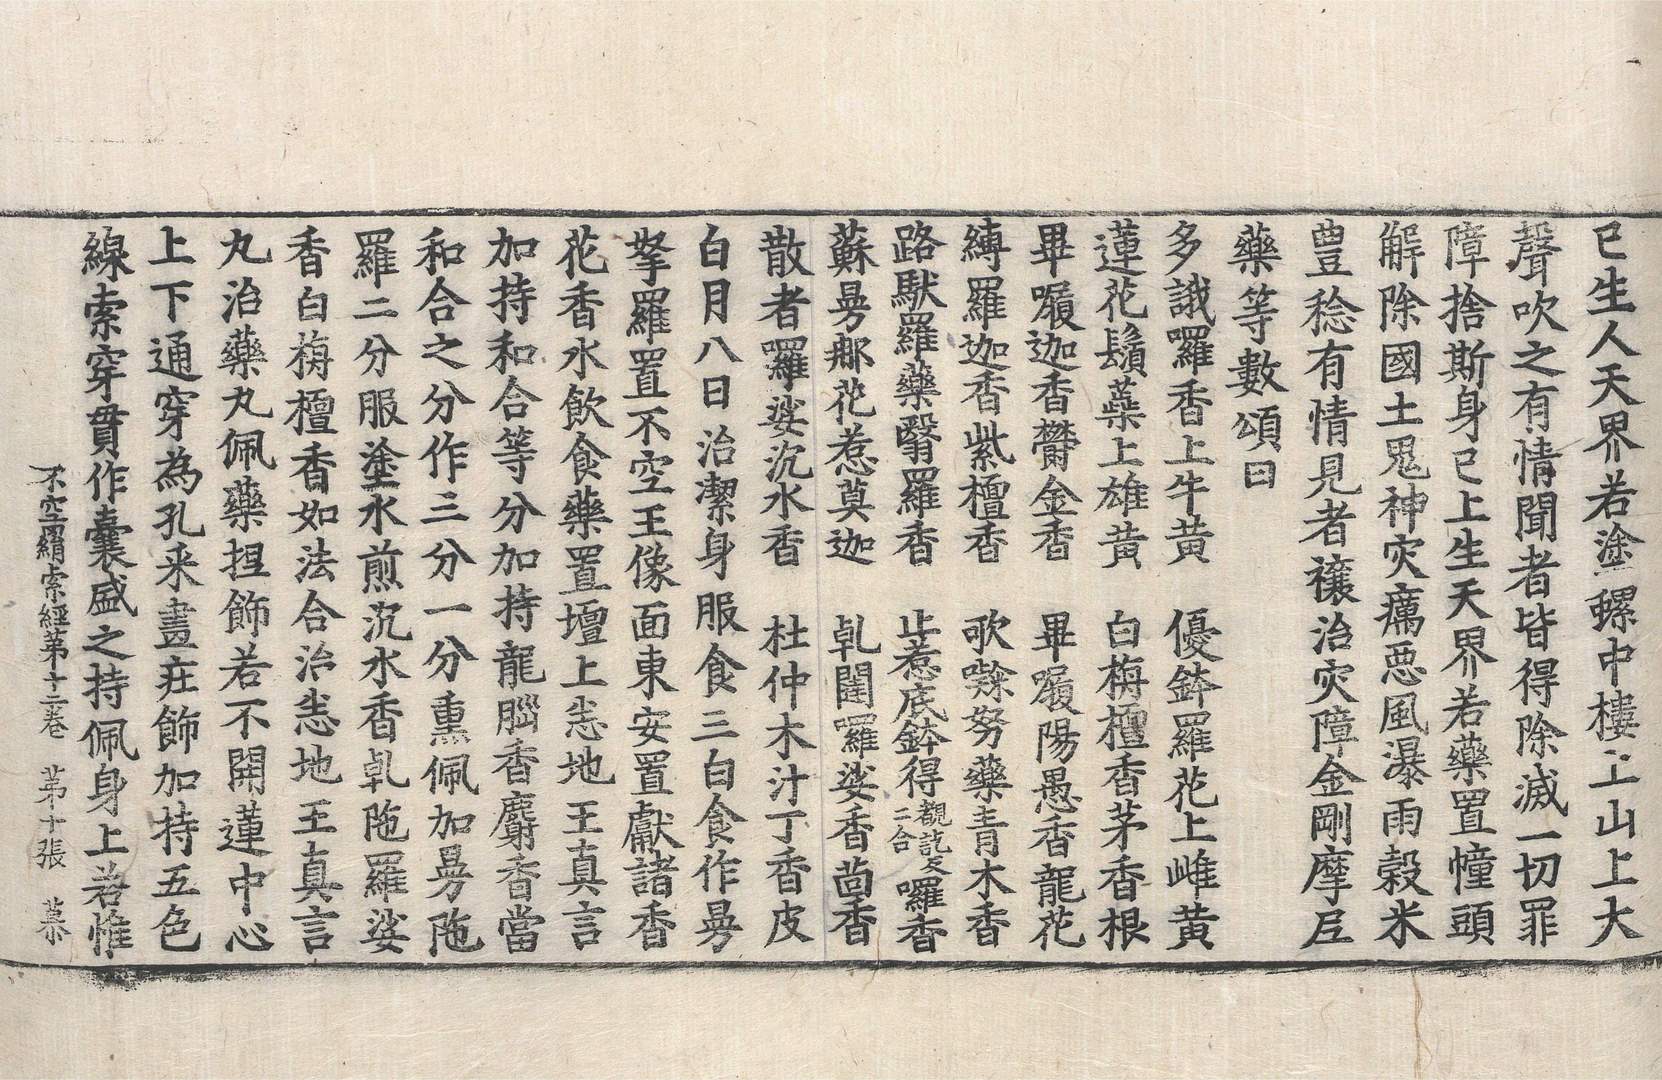 已生人天界若塗螺中樓上山上大
聲吹之有情聞者皆得除滅一切罪
障捨斯身已上生天界若藥置幢頭
解除國土鬼神灾癘惡風瀑雨穀米
豊稔有情見者禳治灾障金剛摩尼
藥等數頌曰
多誐囉香上牛黄　優鉢羅花上雌黄
蓮花鬚蘂上雄黄　白栴檀香茅香根
畢㘑迦香欝金香　畢㘑陽愚香龍花
縛羅迦香紫檀香　歌㗚努藥青木香
路馱羅藥翳羅香　止惹底鉢得二合觀訖反囉香
蘇曼郍花惹莫迦　乹闥羅娑香茴香
散者囉娑沉水香　杜仲木汁丁香皮
白月八日治潔身服食三白食作曼
拏羅置不空王像面東安置獻諸香
花香水飲食藥置壇上恚地王真言
加持和合等分加持龍腦香麝香當
和合之分作三分一分熏佩加曼陁
羅二分服塗水煎沉水香乹陁羅娑
香白栴檀香如法合治恚地王真言
丸治藥丸佩藥捏飾若不開蓮中心
上下通穿為孔釆畫疘飾加持五色
線索穿貫作囊盛之持佩身上若惟
不空羂索經第十二卷　第十張　慕